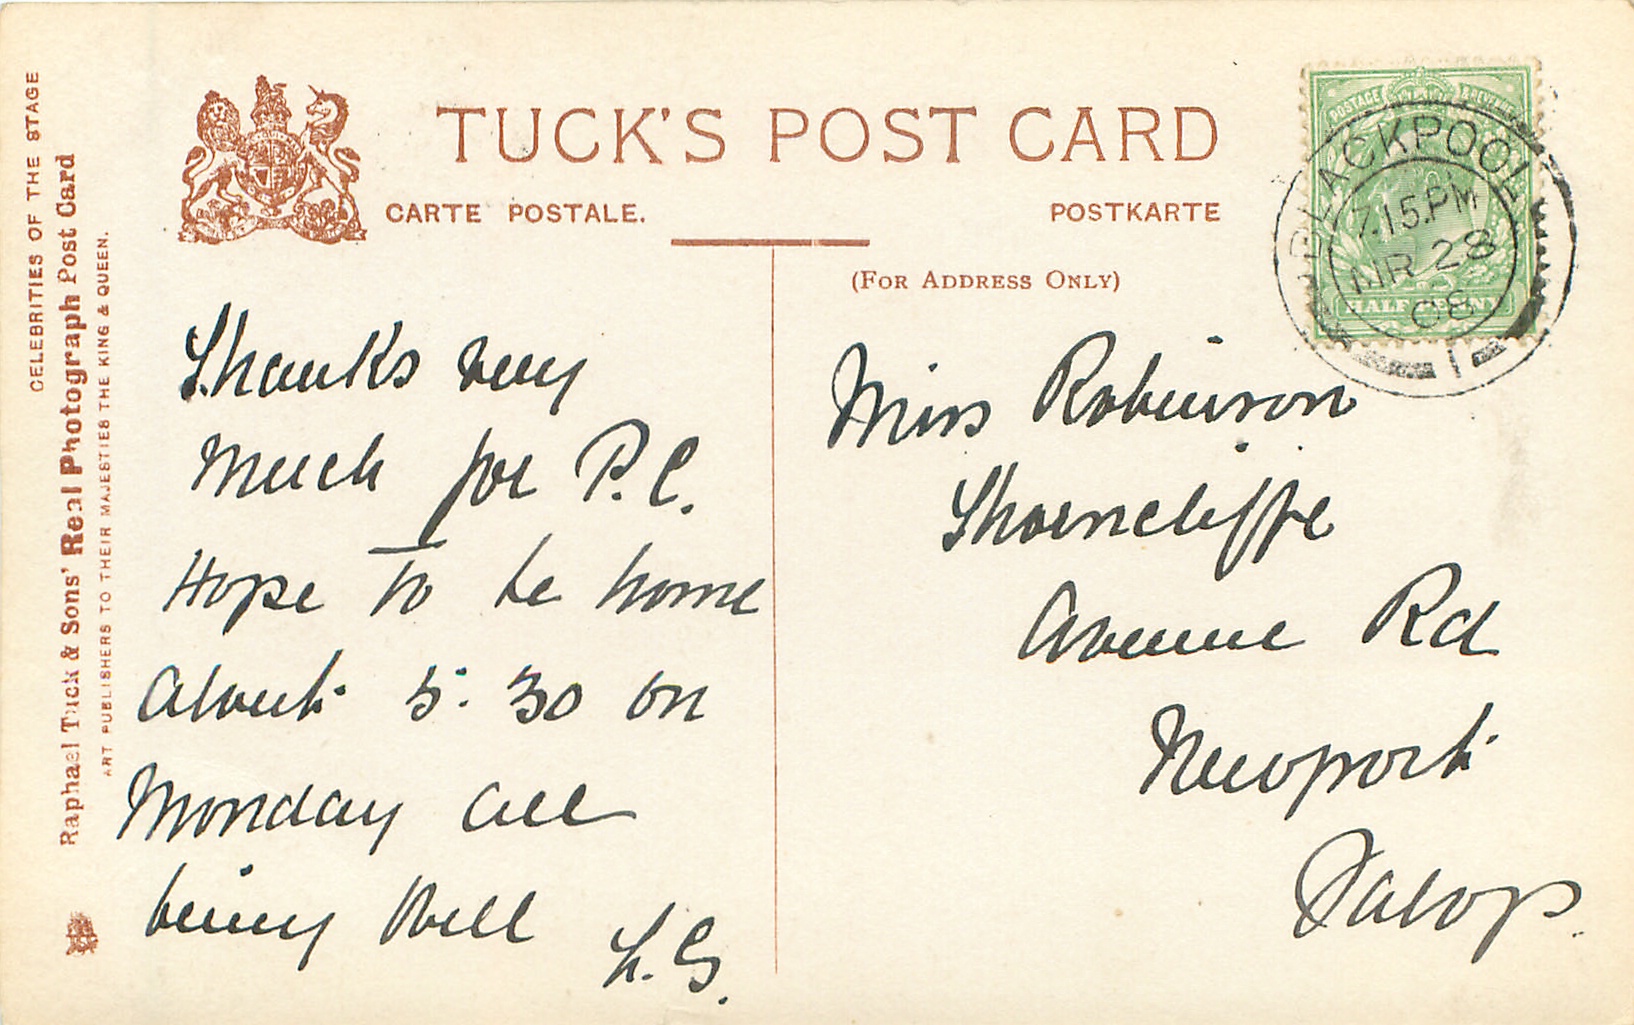 CELEBRITIES OF THE STAGE
Raphael Tuck & Sons' Real Photograph Post Card
ART PUBLISHERS TO THEIR MAJESTIES THE KING & QUEEN.
TUCK'S POST CARD
CARTE POSTALE.
POSTKARTE
(FOR ADDRESS ONLY)
POSTAGE & REVENUE
HALFPENNY
BLACKPOOL
7.15.PM
MR 28
08
1
Thanks very
Much for P.C.
Hope to be home
About 5.30 on
Monday all
being Well
L.G.
Miss Robinson
Shorncliffe
Avenue Rd
Newport
Salop.